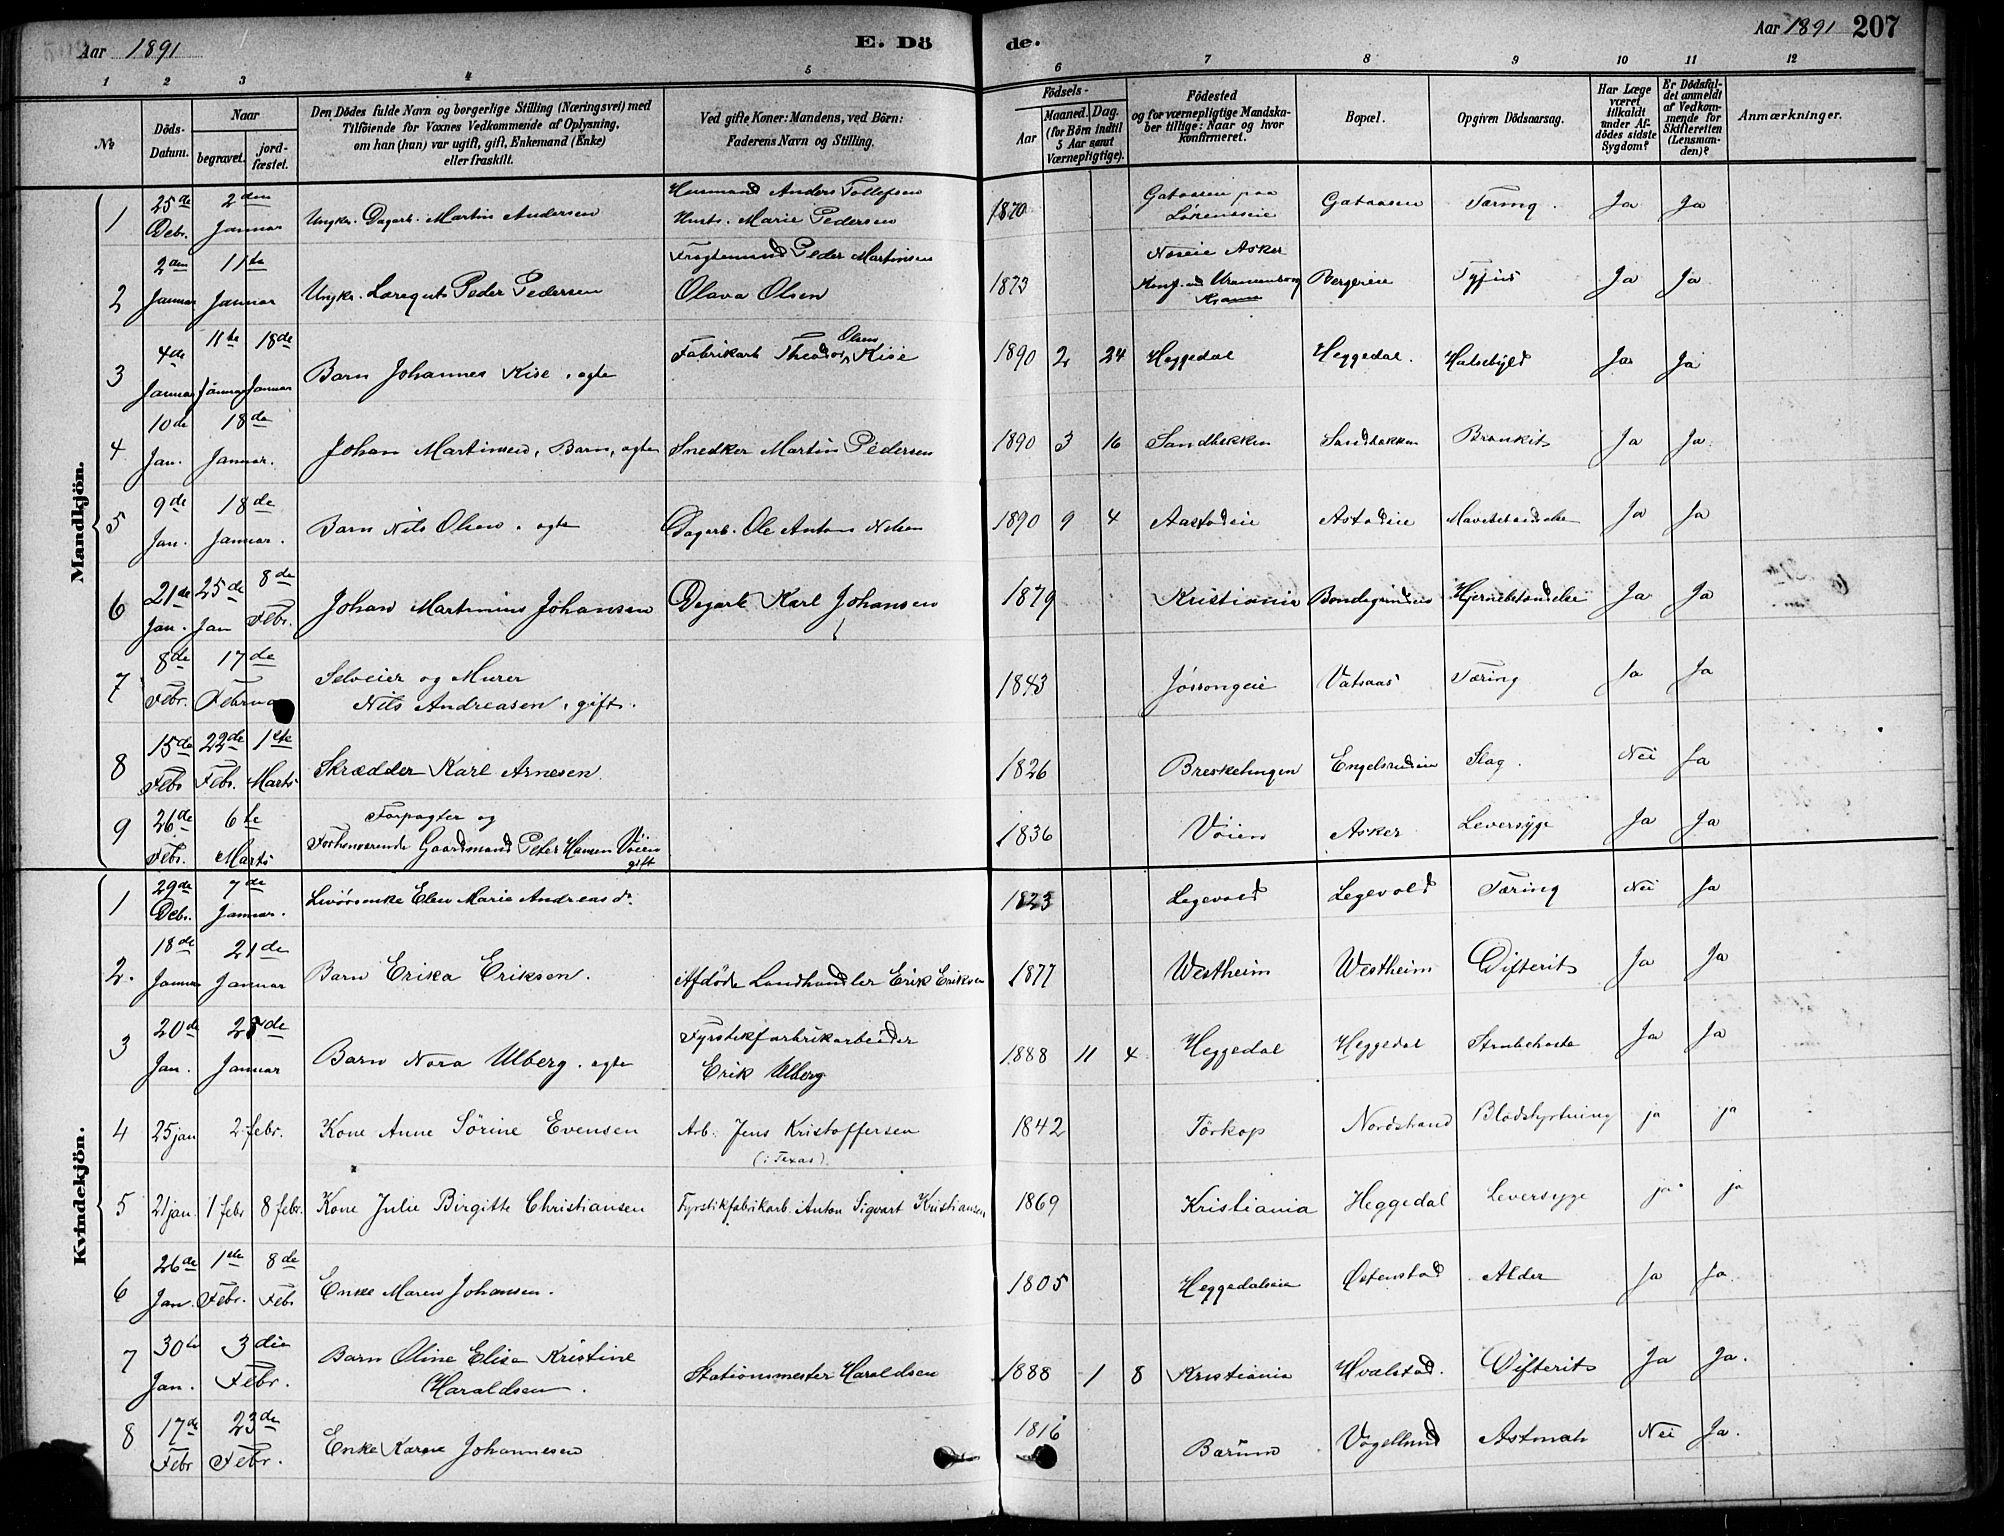 Aar 1891
E. Dö
de.
Aar 1891 207
1 2 3 4 5 6 7 8 9 10 11 12
No
Döds-Datum.
Naar
begravet.
jord-fæstet.
Den Dödes fulde Navn og borgerlige Stilling (Næringsvei) med
Tilföiende for Voxnes Vedkommende af Oplysning,
om han (hun) var ugift, gift, Enkemand (Enke)
eller fraskilt.
Ved gifte Koner: Mandens, ved Börn:
Faderens Navn og Stilling.
Födsels-
Aar
Maaned. Dag.
(for Börn indtil
5 Aar samt
Værnepligtige).
Födested
og for værnepligtige Mandska-
ber tillige: Naar og hvor
konfirmeret.
Bopæl.
Opgiven Dödsaarsag.
Har Læge
været
tilkaldt
under Af-
dödes sidste
Sygdom?
Er Dödsfal-
det anmeldt
af Vedkom-
mende for
Skifteretten
(Lensman-
den)?
Anmærkninger.
Mandkjön.
1 25de Debr. 2den Januar Ungkr. Dagarb. Martin Andersen Husmand Anders Tollefsen Hust. Marie Pedersen 1870 Gataasen paa Løkenseie Gataasen Tæring. Ja Ja
2 2den Januar 11te Januar Ungkr. Peder Pedersen Peder Martinsen Olava Olsen 1873 Næseie Asker Konf. Uranienborg Bergereie Tyfus Ja Ja
3 4de Januar 11te Januar 18de Januar Barn Johannes Kise, ægte Fabrikarb Theodor Olsen Kise 1890 2 24 Heggedal Heggedal. Halsebyld Ja Ja
4 10de Jan. 18de Januar. Johan Martinsen, Barn, ægte Snedker Martin Pedersen 1890 3 16 Sandbakken Sandbakken Bronkit Ja Ja
5 9de Jan. 18de Januar. Barn Nils Olsen, ægte Dagarb. Ole Anton Nilsen 1890 9 4 Aastadeie Astadeie Mavebetændelse Ja Ja
6 21de Jan. 25de Jan 8de Febr. Johan Martinius Johansen Dagarb Karl Johansen 1879 Kristiania Hjernebetændelse Ja Ja
7 8de Febr. 17de Februar Selveier og Murer
Nils Andreasen, gift. 1843 Jøssongeie Vatsaas Tæring Ja Ja
8 15de Febr 22de Febr. 1ste Marts Skrædder Karl Arnesen 1826 Breskelingen Engelsrudeie Slag. Nei Ja
9 26de Febr. 6te Marts Forpagter og
Forhenværende Gaardmand Peter Hansen Vöien gift 1836 Vöien Asker Leversyge Ja Ja
Kvindekjön.
1 29de Debr. 7de Januar. Elen Marie Andreasd. 1823 Legevold Legevold Tæring Nei Ja
2. 18de Januar 21de Januar Barn Erika Eriksen. Afdöde Landhandler Erik Eriksen 1877 Westheim Westheim Difterit Ja Ja
3 20de Jan. 25de Januar Barn Nora Ulberg, ægte Fyrstikfabrikarbeider
Erik Ulberg 1888 11 4 Heggedal Heggedal Strubehoste Ja Ja
4 25 jan 2. febr. Kone Anne Sörine Evensen Arb. Jens Kristoffersen
(i Texas). 1842 Törkop Nordstrand Blodstyrtning ja ja
5 21 jan. 1 febr 8 febr. Kone Julie Birgitte Christiansen Fyrstikfabrikarb. Anton Sigvart Kristiansen 1869 Kristiania Heggedal Leversyge ja ja
6 26de Jan. 1ste Febr. 8de Febr Enke Maren Johansen. 1805 Heggedalseie Østenstad Alder Ja Ja
7 30te Jan. 3die Febr. Barn Oline Elise Kristine
Haraldsen. Stationsmester Haraldsen 1888 1 8 Kristiania Hvalstad. Difterit Ja Ja.
8 17de Febr 23de Febr. Enke Karen Johannesen 1816 Bærum Vogellund Astmah Nei Ja.